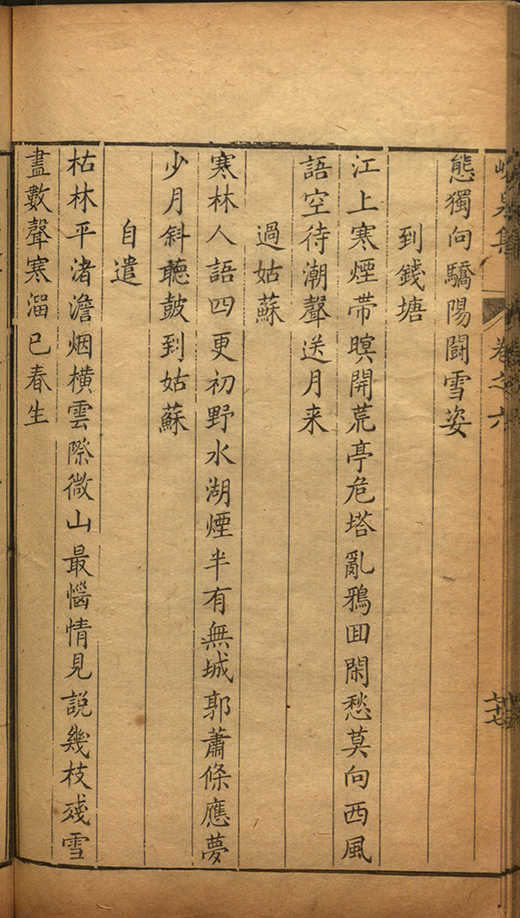 態獨向驕陽鬪雪姿
到錢塘
江上寒煙帶暝開荒亭危塔亂鴉囬閑愁莫向西風
語空待潮聲送月来
過姑蘇
寒林人語四更初野水湖煙半有無城郭蕭條應夢
少月斜聽鼓到姑蘇
自遣
枯林平渚澹烟橫雲際微山最惱情見說幾枝殘雪
盡數聲寒溜已春生
卷之六